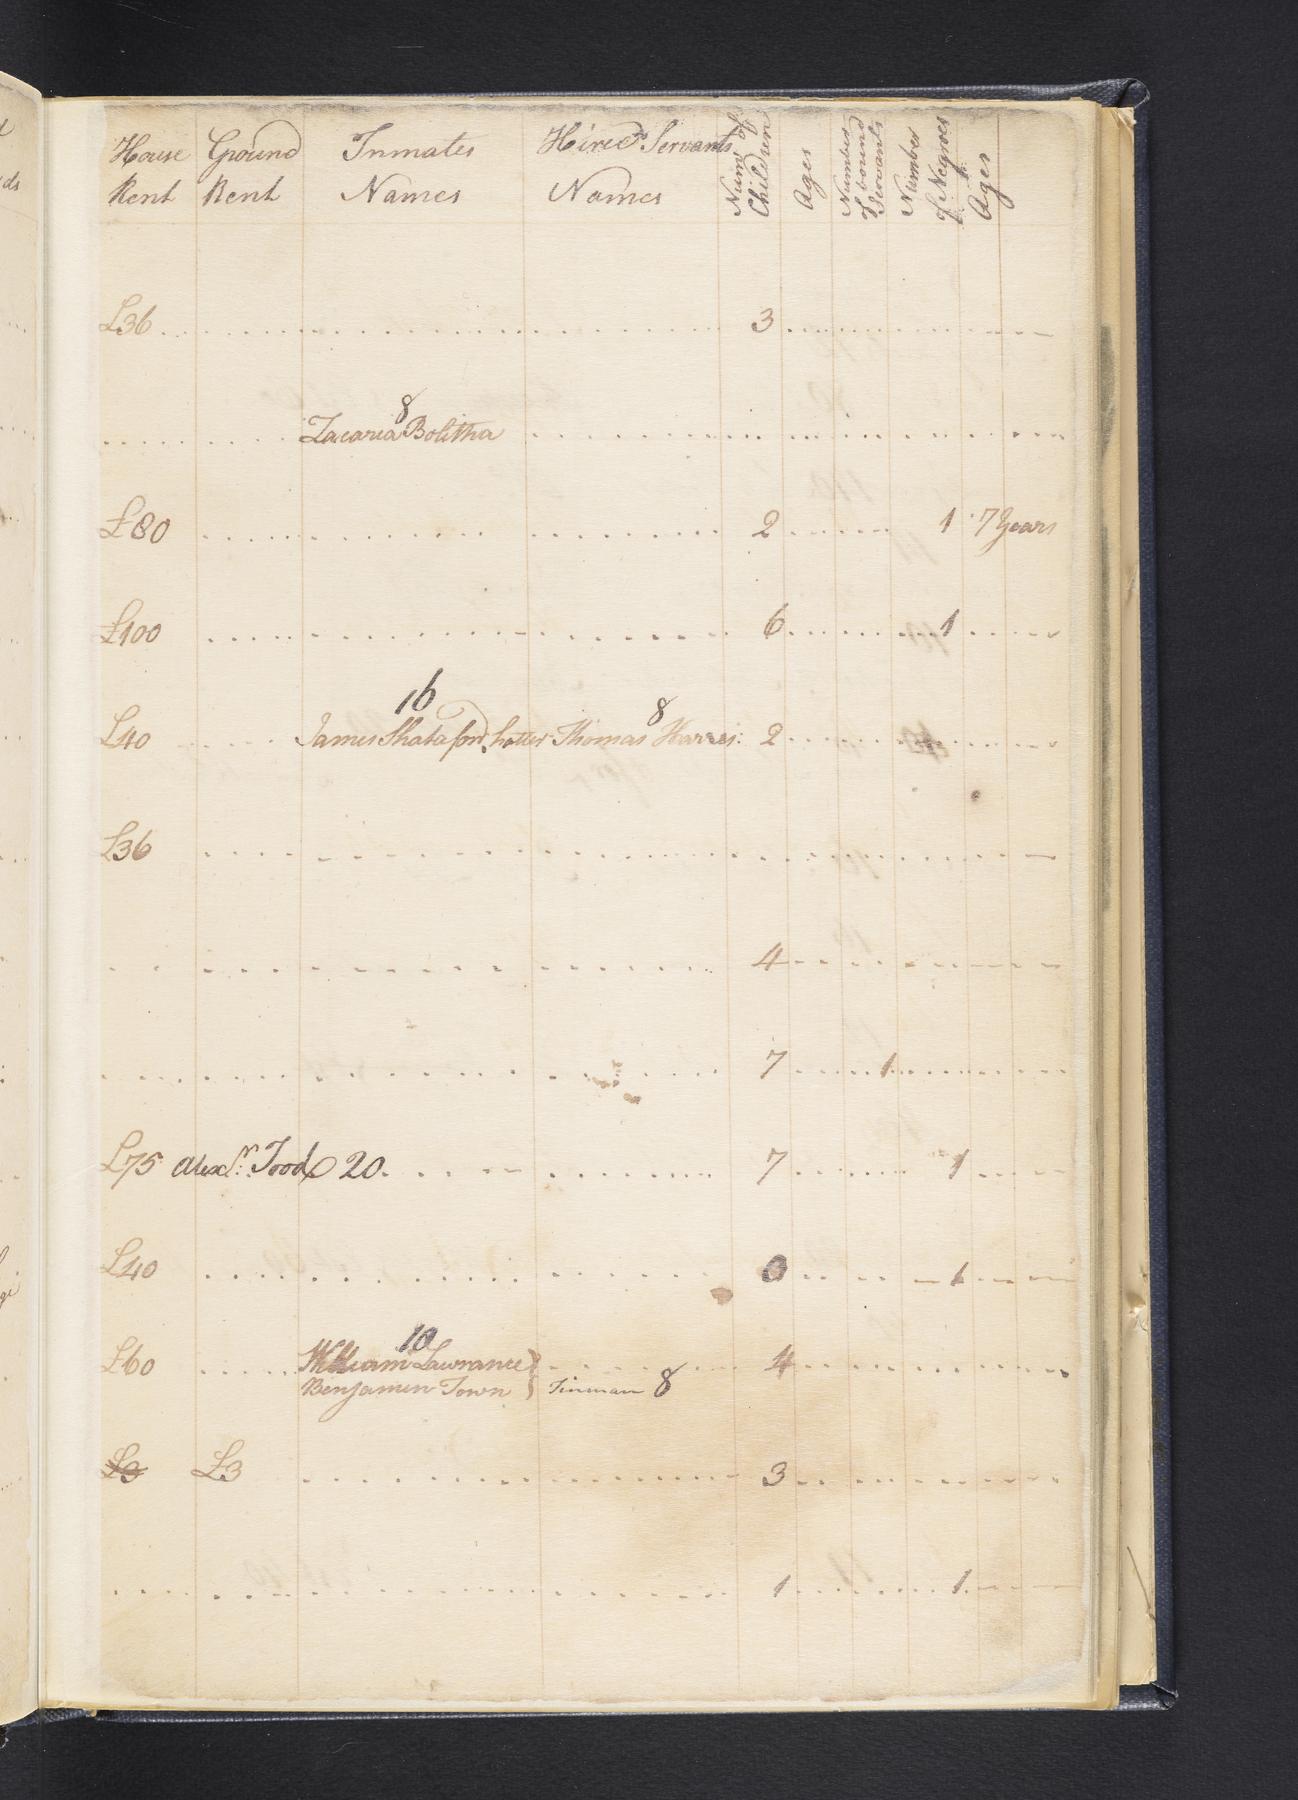 House Rent | Ground Rent | Inmates Names | Hired Servants Names | Num.r of Children | Ages | Number of bound Servants | Number of Negroes & Ages
£36 3
8
Zacaria Bolitha
£80 2 1 7 Years
£100 6 1
16 8
£40 James hatter Thomas Harris: 2
£36
4
7 1
£75 Alexd.r Tood 20 7 1
£40 0 1
10
£60 William Lawrance } 4
Benjamin Town } Tinman 8
£3 £3 3
1 1